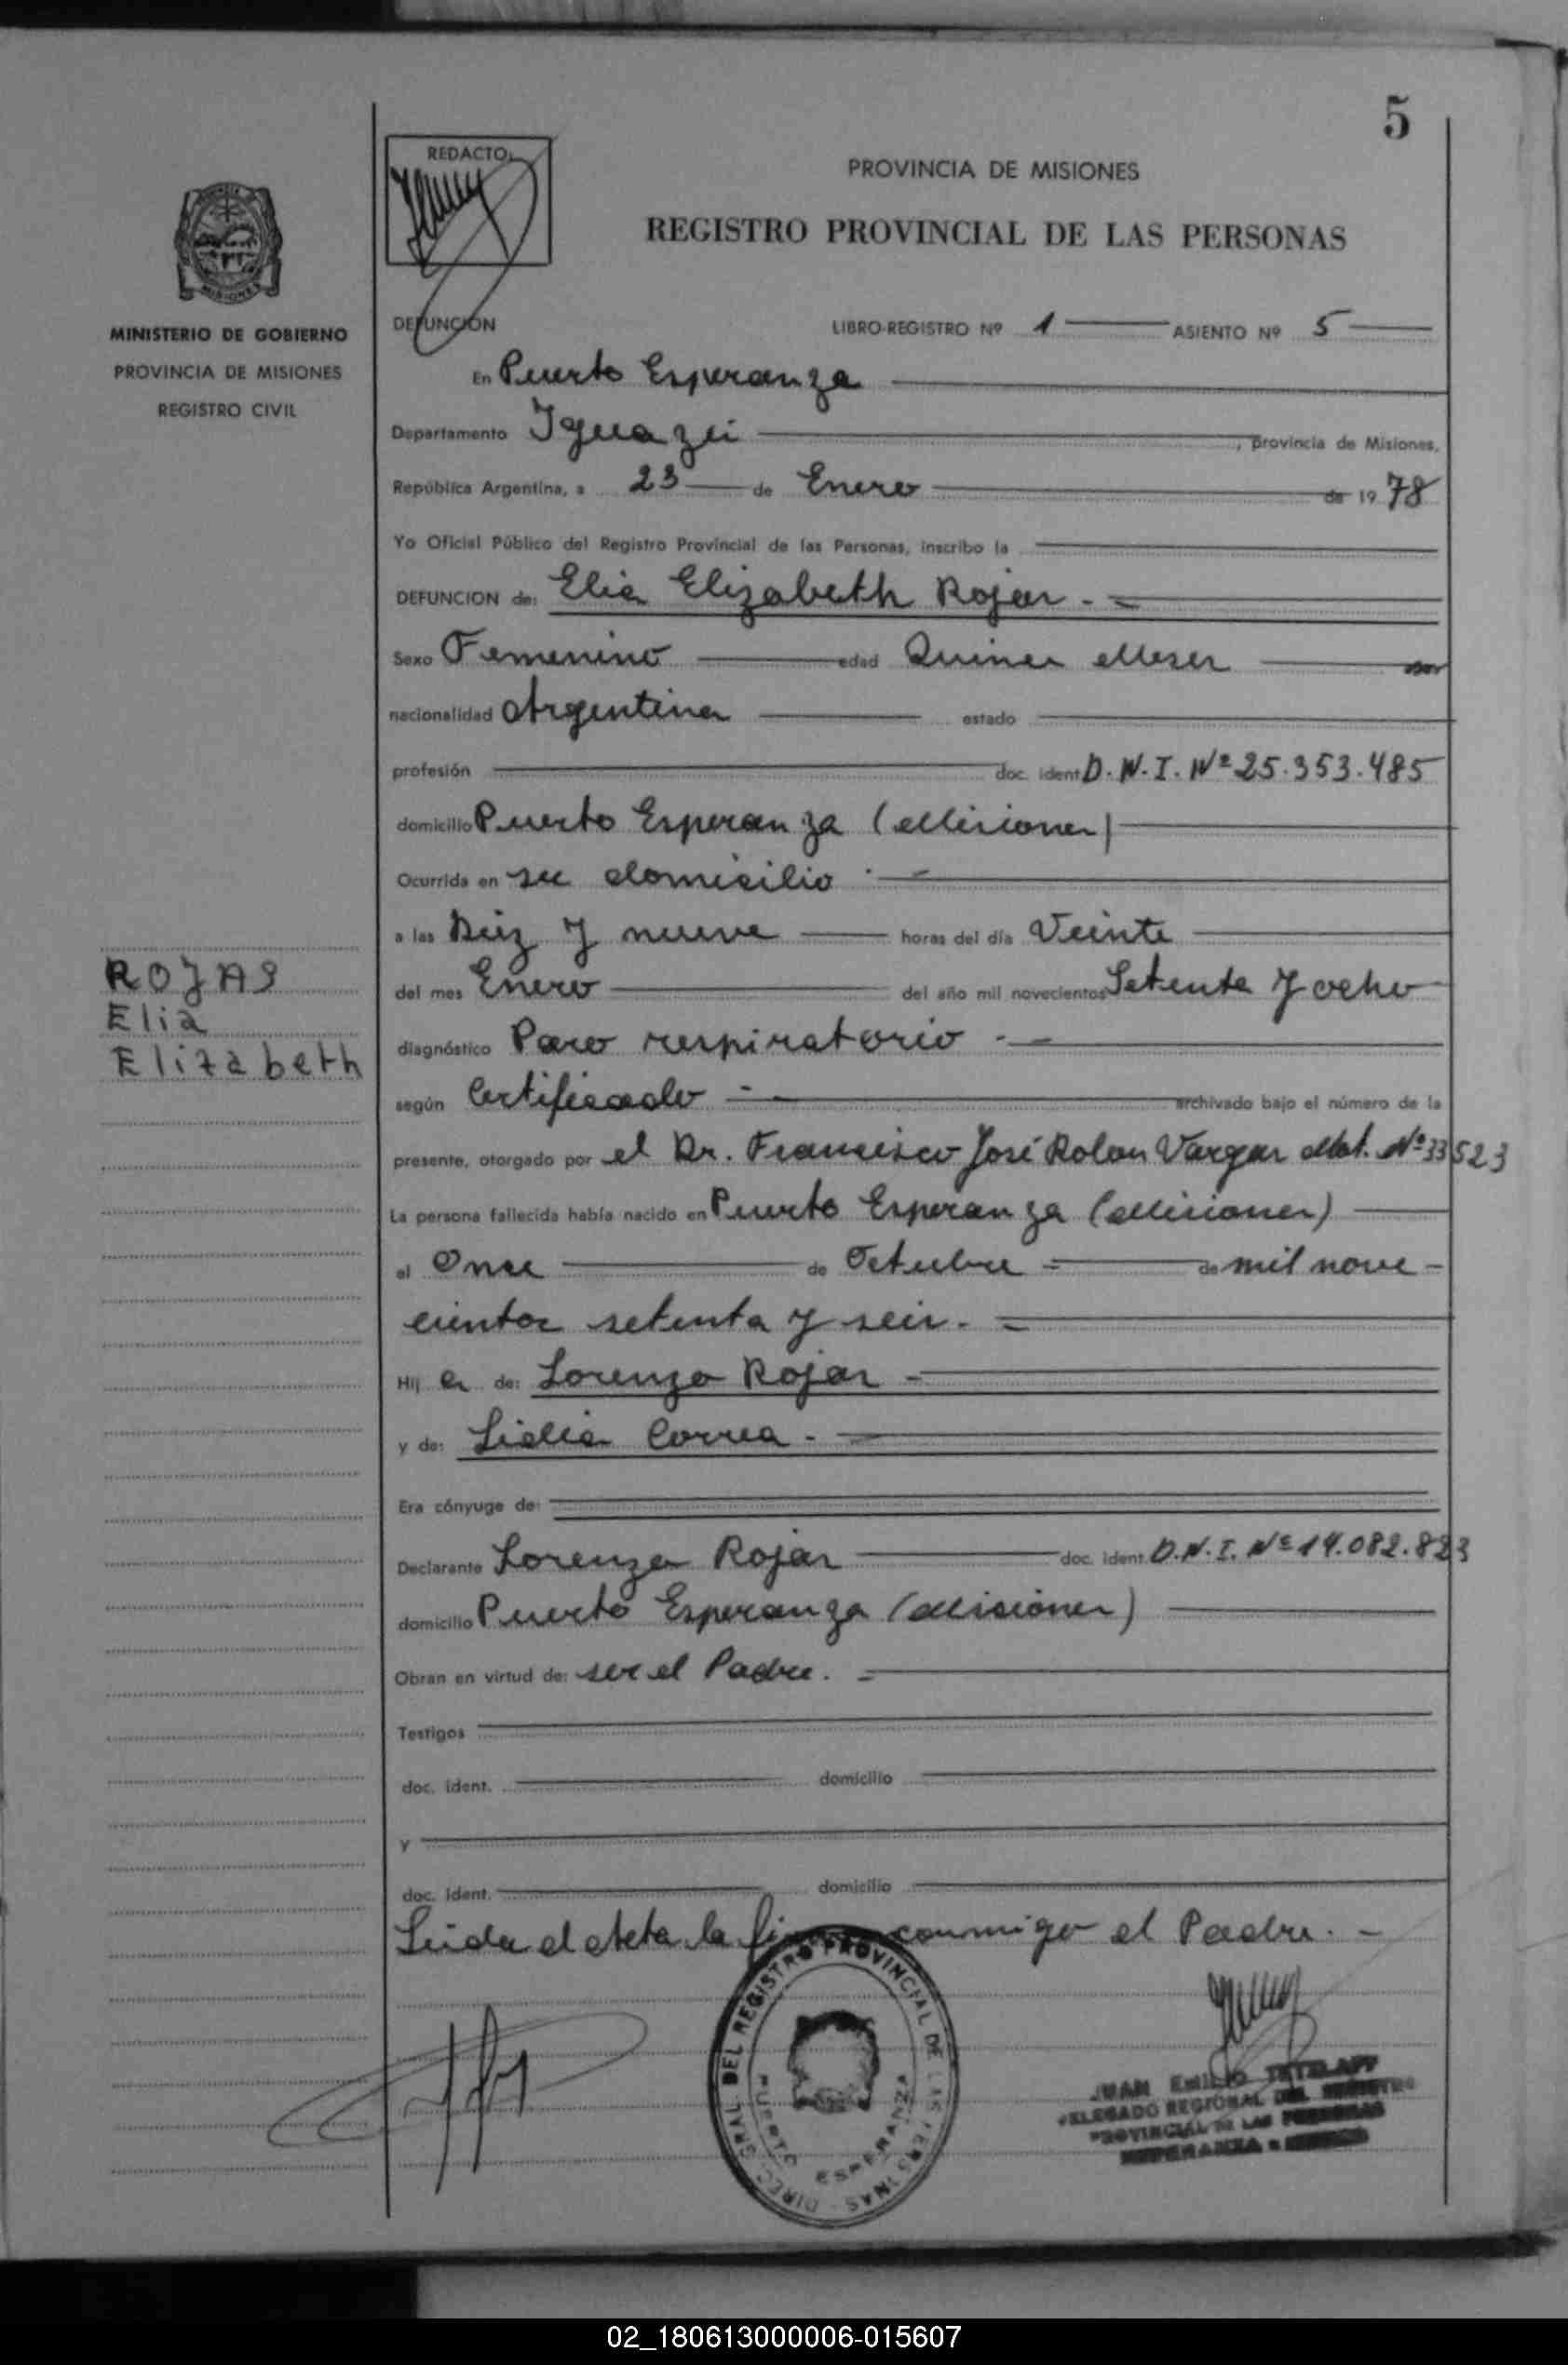 5
REDACTO:
PROVINCIA DE MISIONES
REGISTRO PROVINCIAL DE LAS PERSONAS
MISIONES
MINISTERIO DE GOBIERNO
PROVINCIA DE MISIONES
REGISTRO CIVIL
DEFUNCION LIBRO-REGISTRO Nº 1 ASIENTO Nº 5
En Puerto Esperanza
Departamento Iguazú, provincia de Misiones,
República Argentina, a 23 de Enero de 1978
Yo Oficial Público del Registro Provincial de las Personas, inscribo la
DEFUNCION de: Elia Elizabeth Rojas.-
Sexo Femenino edad Quince Meses
nacionalidad Argentina estado
profesión doc. ident. D.N.I. Nº 25.353.485
domicilio Puerto Esperanza (Misiones)
Ocurrida en su domicilio.-
a las Diez y nueve horas del día Veinte
del mes Enero del año mil novecientos Setenta y ocho
diagnóstico Paro respiratorio.-
según Certificado.- archivado bajo el número de la
presente, otorgado por el Dr. Francisco José Rolon Vargas Mat. Nº 33523
La persona fallecida había nacido en Puerto Esperanza (Misiones)
el Once de Octubre de mil nove-
cientos setenta y seis.-
Hij a de: Lorenzo Rojas.-
y de: Lidia Correa.-
Era cónyuge de:
Declarante Lorenzo Rojas doc. ident. D.N.I. Nº 14.082.823
domicilio Puerto Esperanza (Misiones)
Obran en virtud de: ser el Padre.-
Testigos
doc. ident. domicilio
y
doc. ident. domicilio
Leida el Acta la conmigo el Padre.-
ROJAS
Elia
Elizabeth
DIREC. GRAL. DEL REGISTRO PROVINCIAL DE LAS PERSONAS
PUERTO ESPERANZA
JUAN EMILIO TETZLAFF
DELEGADO REGIONAL DEL REGISTRO
PROVINCIAL DE LAS PERSONAS
ESPERANZA
02_180613000006-015607